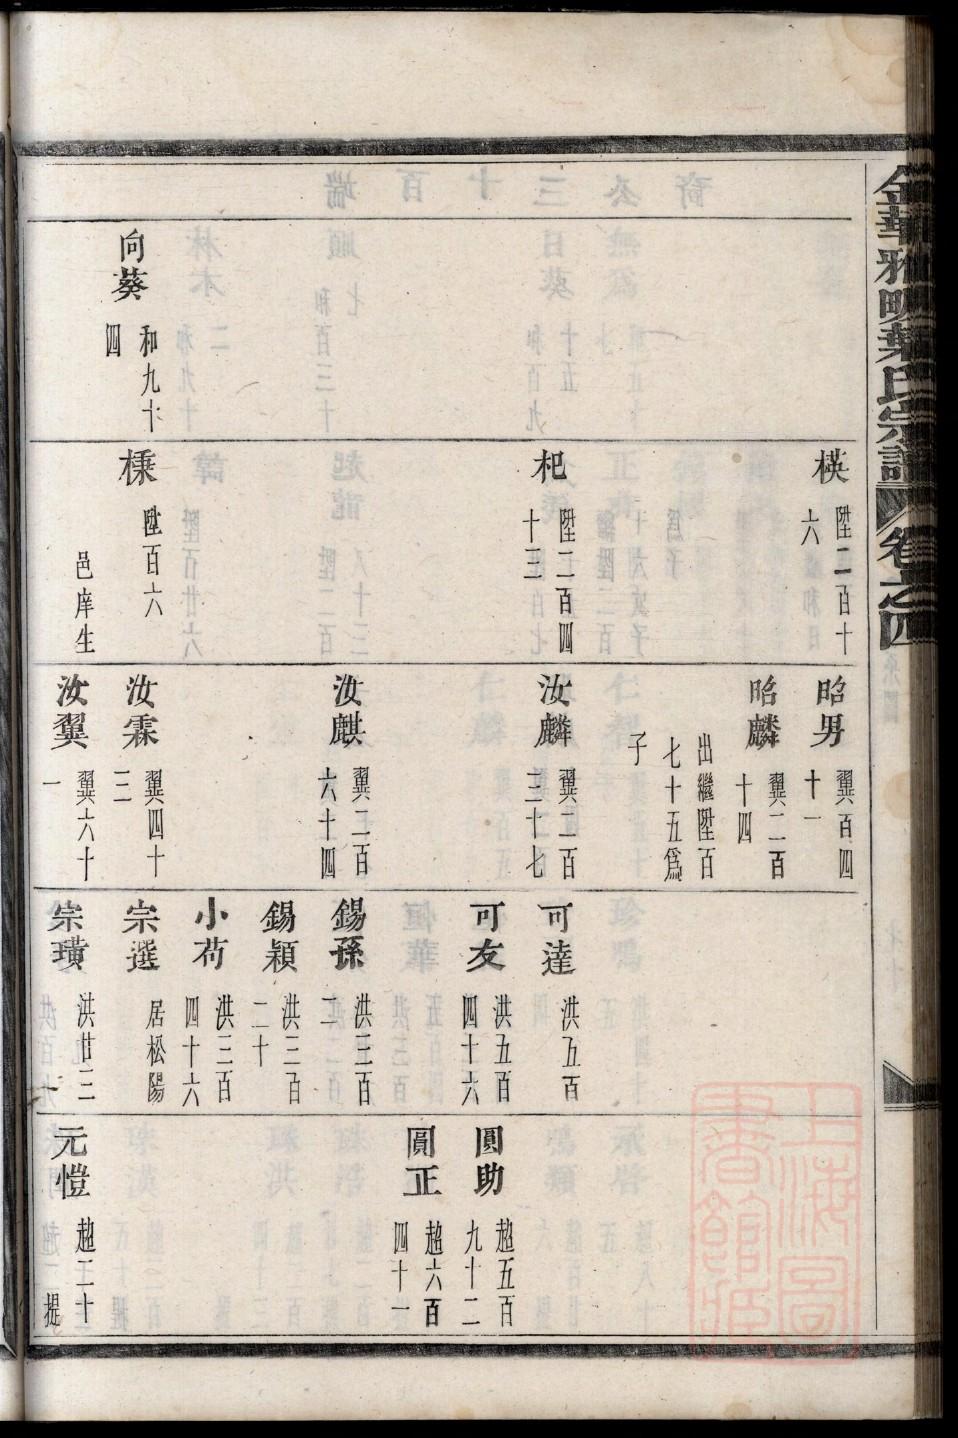 金華雅畈葉氏宗譜 卷之四
向葵 和九十四
楧 陞二百十六
杷 陞二百四十三
榡 陞百六 邑庠生
昭男 翼百四十一
昭麟 翼二百十四 出繼陞百七十五爲子
汝麟 翼二百三十七
汝麒 翼二百六十四
汝霖 翼四十三
汝翼 翼六十一
可達 洪五百
可友 洪五百四十六
錫孫 洪三百二
錫穎 洪三百二十
小苟 洪三百四十六
宗選 居松陽
宗璜 洪廿三
圓助 趙五百九十二
圓正 趙六百四十一
元愷 趙二十 提
上海圖書館藏